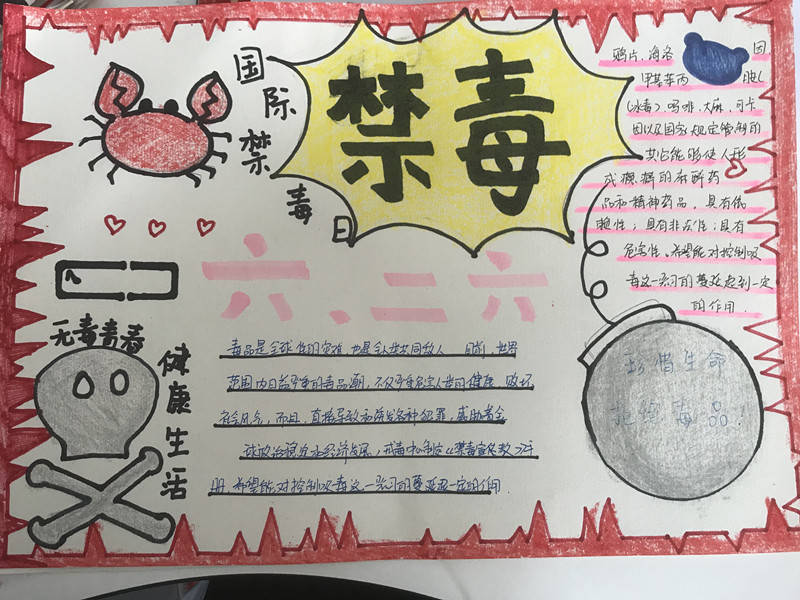 国际禁毒日
禁毒
鸦片、海洛 因
甲基苯丙 胺
(冰毒)、吗啡、大麻、可卡
因以及国家规定管制的
其它能够使人形
成瘾癖的麻醉药
品和精神药品，具有依
赖性；具有非法性；具有
危害性。希望能对控制吸
毒这一恶习的蔓延起到一定
的作用.
六.二六
无毒青春
健康生活
毒品是全球性的灾难，也是全人类共同敌人 目前，世界
范围内日益严重的毒品潮，不仅严重危害人类的健康 败坏
社会风气，而且，直接导致和诱发各种犯罪，
政治 经济发展，戒毒中心制定《禁毒宣传教 》
册 希望能对控制吸毒这一恶习的蔓延 一定的作用.
珍惜生命
拒绝毒品